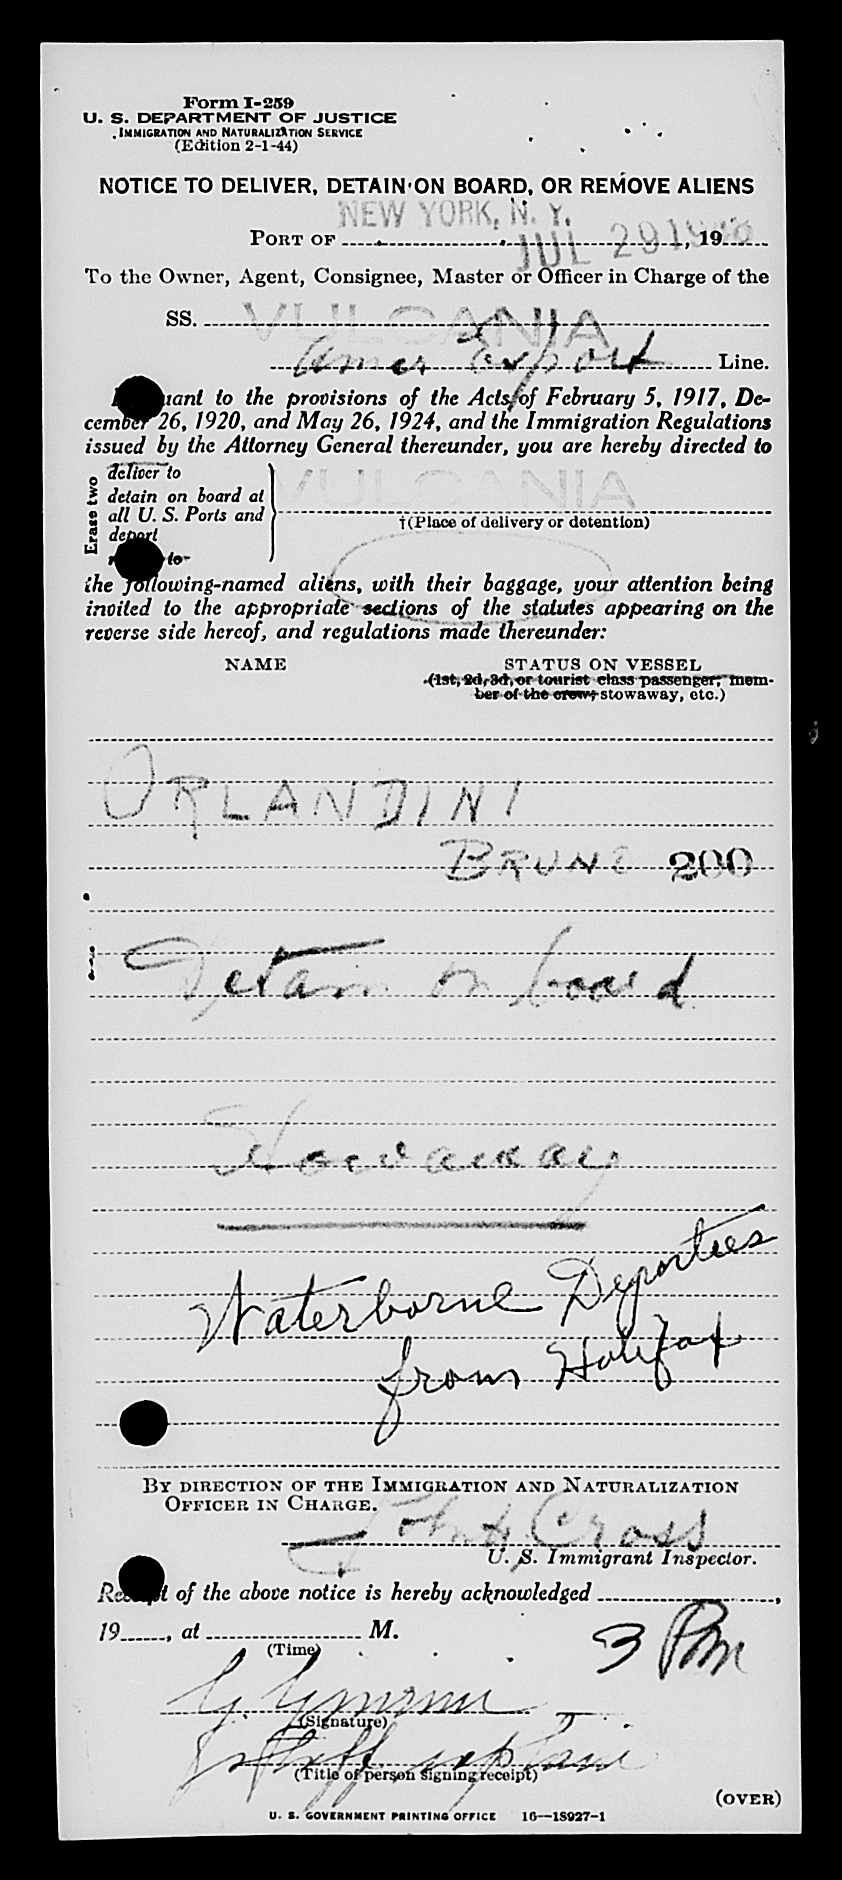 Form I-259
U. S. DEPARTMENT OF JUSTICE
IMMIGRATION AND NATURALIZATION SERVICE
(Edition 2-1-44)
NOTICE TO DELIVER, DETAIN ON BOARD, OR REMOVE ALIENS
NEW YORK, N. Y.
PORT OF JUL 29 19, 19
To the Owner, Agent, Consignee, Master or Officer in Charge of the
SS. VULCANIA
Amer Export Line.
uant to the provisions of the Acts of February 5, 1917, De-
cember 26, 1920, and May 26, 1924, and the Immigration Regulations
issued by the Attorney General thereunder, you are hereby directed to
Erase two
deliver to
detain on board at
all U. S. Ports and
deport
to
VULCANIA
†(Place of delivery or detention)
the following-named aliens, with their baggage, your attention being
invited to the appropriate sections of the statutes appearing on the
reverse side hereof, and regulations made thereunder:
NAME STATUS ON VESSEL
(1st, 2d, 3d, or tourist class passenger, mem-
ber of the crew, stowaway, etc.)
ORLANDINI
BRUNO 200
Detain on board
Stowaway
Waterborne Deportees
from Halifax
BY DIRECTION OF THE IMMIGRATION AND NATURALIZATION
OFFICER IN CHARGE.
John Cross
U. S. Immigrant Inspector.
Receipt of the above notice is hereby acknowledged ,
19 , at M.
3 Pm
(Time)
(Signature)
Staff captain
(Title of person signing receipt)
(OVER)
U. S. GOVERNMENT PRINTING OFFICE 16—18927-1